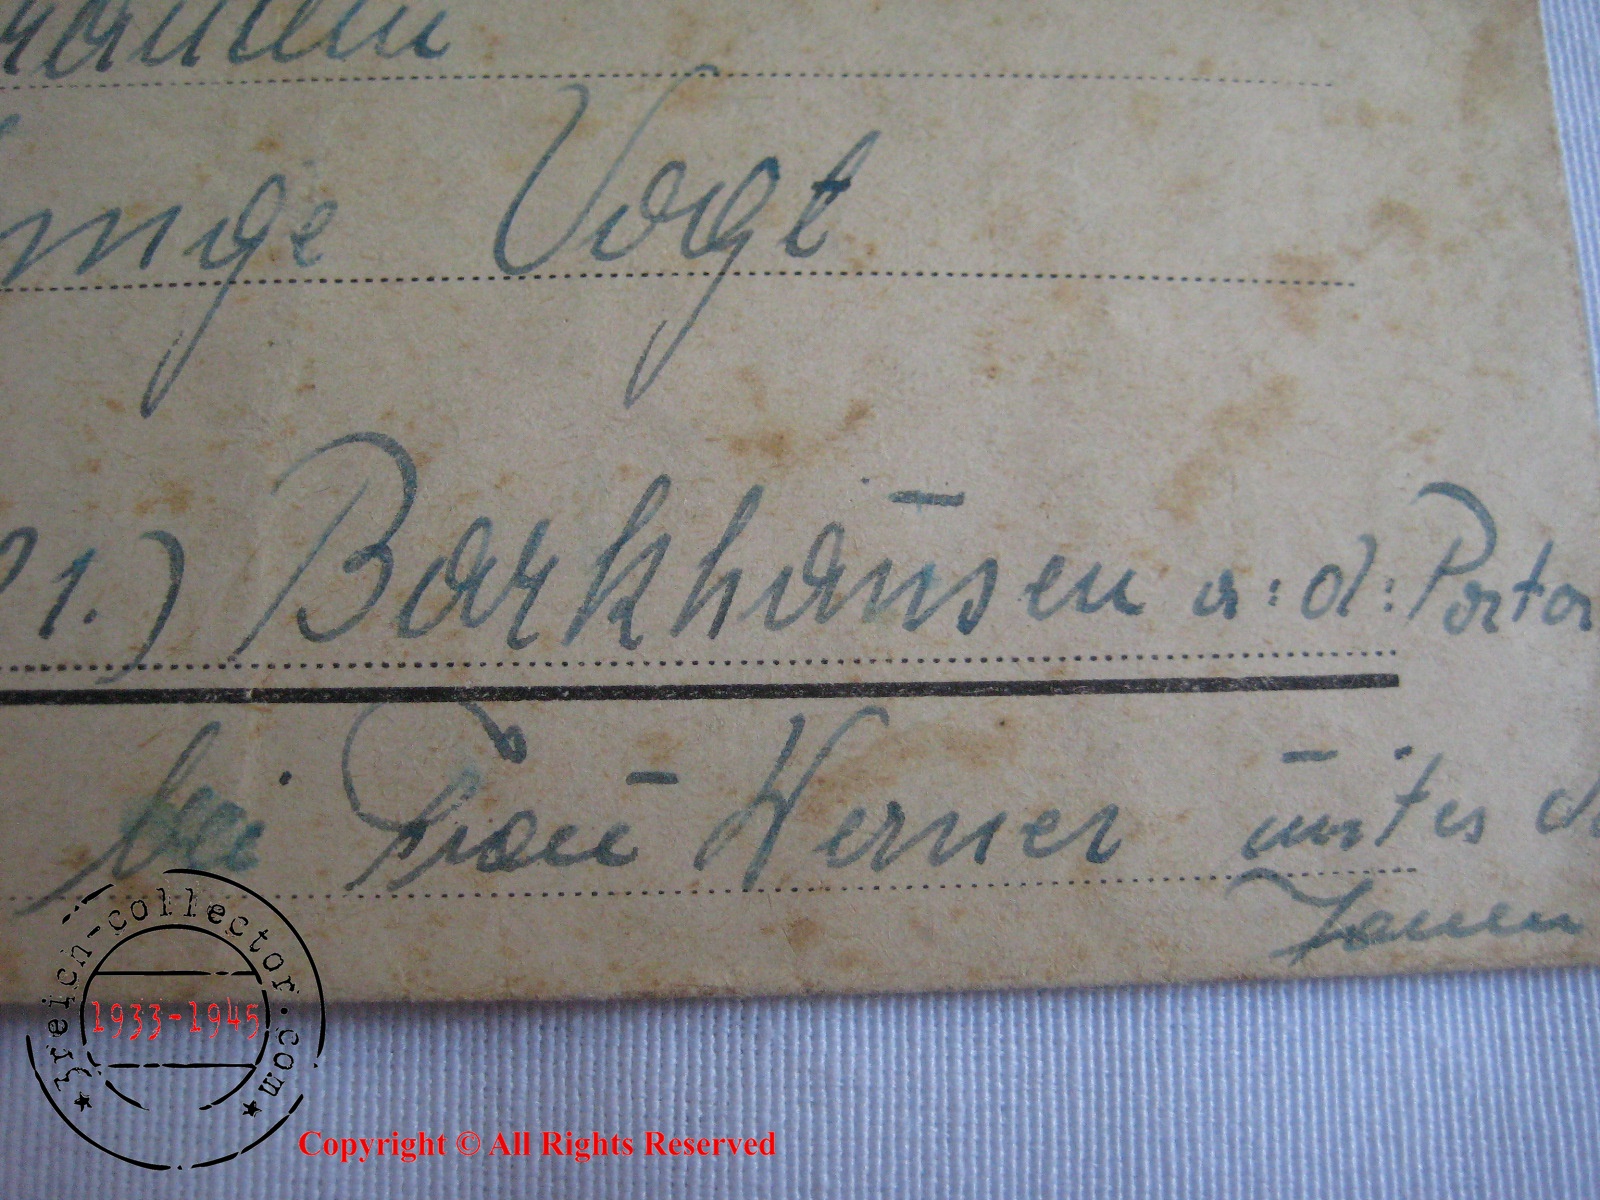 Inge Vogt
21.) Barkhausen a:d: Porta
bei Frau Werner unter d
Tannen
3reich-collector.com
1933-1945
Copyright © All Rights Reserved